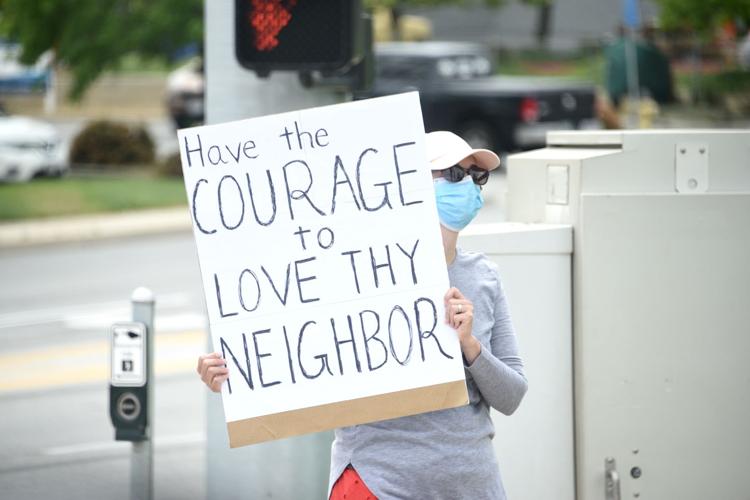 Have the
COURAGE
to
LOVE THY
NEIGHBOR